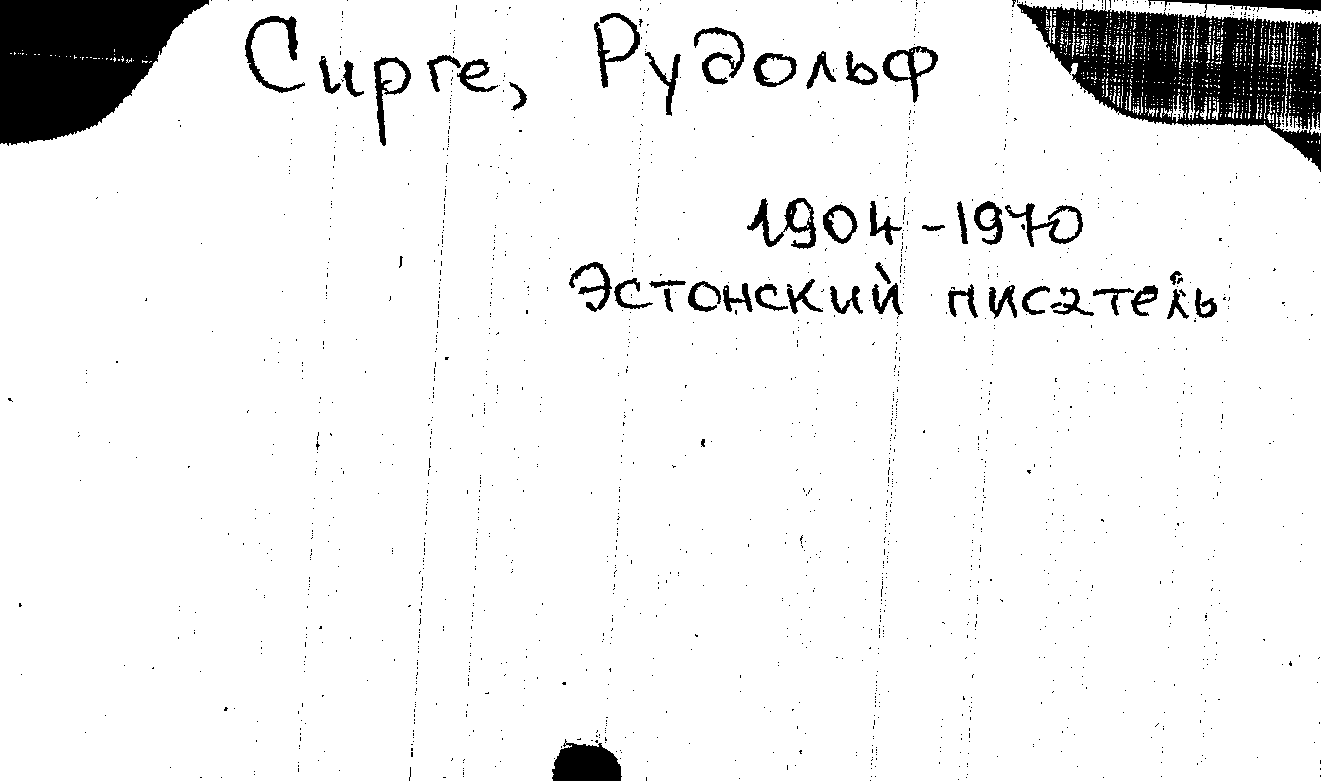 Сирге, Рудольф
1904-1970
Эстонский писатель